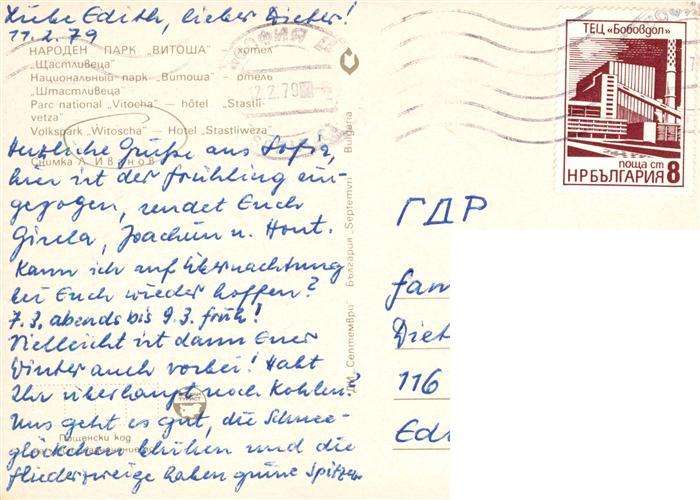 Liebe Edith, lieber Dieter!
11.2.79
НАРОДЕН ПАРК „ВИТОША" — хотел
„Щастливеца"
Национальный парк „Витоша" — отель
„Штастливеца"
Parc national „Vitocha" — hôtel „Stastli-
vetza"
Volkspark „Witoscha" Hotel „Stastliweza"
Снимка А. Иванов
Herzliche Grüße aus Sofia,
hier ist der Frühling ein-
gezogen, sendet Euch
Gisela, Joachim u. Horst.
Kann ich auf Übernachtung
bei Euch wieder hoffen?
7.3. abends bis 9.3. früh!
Vielleicht ist dann Euer
Winter auch vorbei! Habt
Ihr überhaupt noch Kohlen?
Uns geht es gut, die Schnee-
glöckchen blühen und die
Fliederzweige haben grüne Spitzen.
Пощенски код
ДИ „Септември" България "Septemvri" Bulgaria
СОФИЯ
2.79
ТЕЦ „Бобовдол"
поща ст
НР БЪЛГАРИЯ 8
ГДР
Fam
Diet
116
Ed